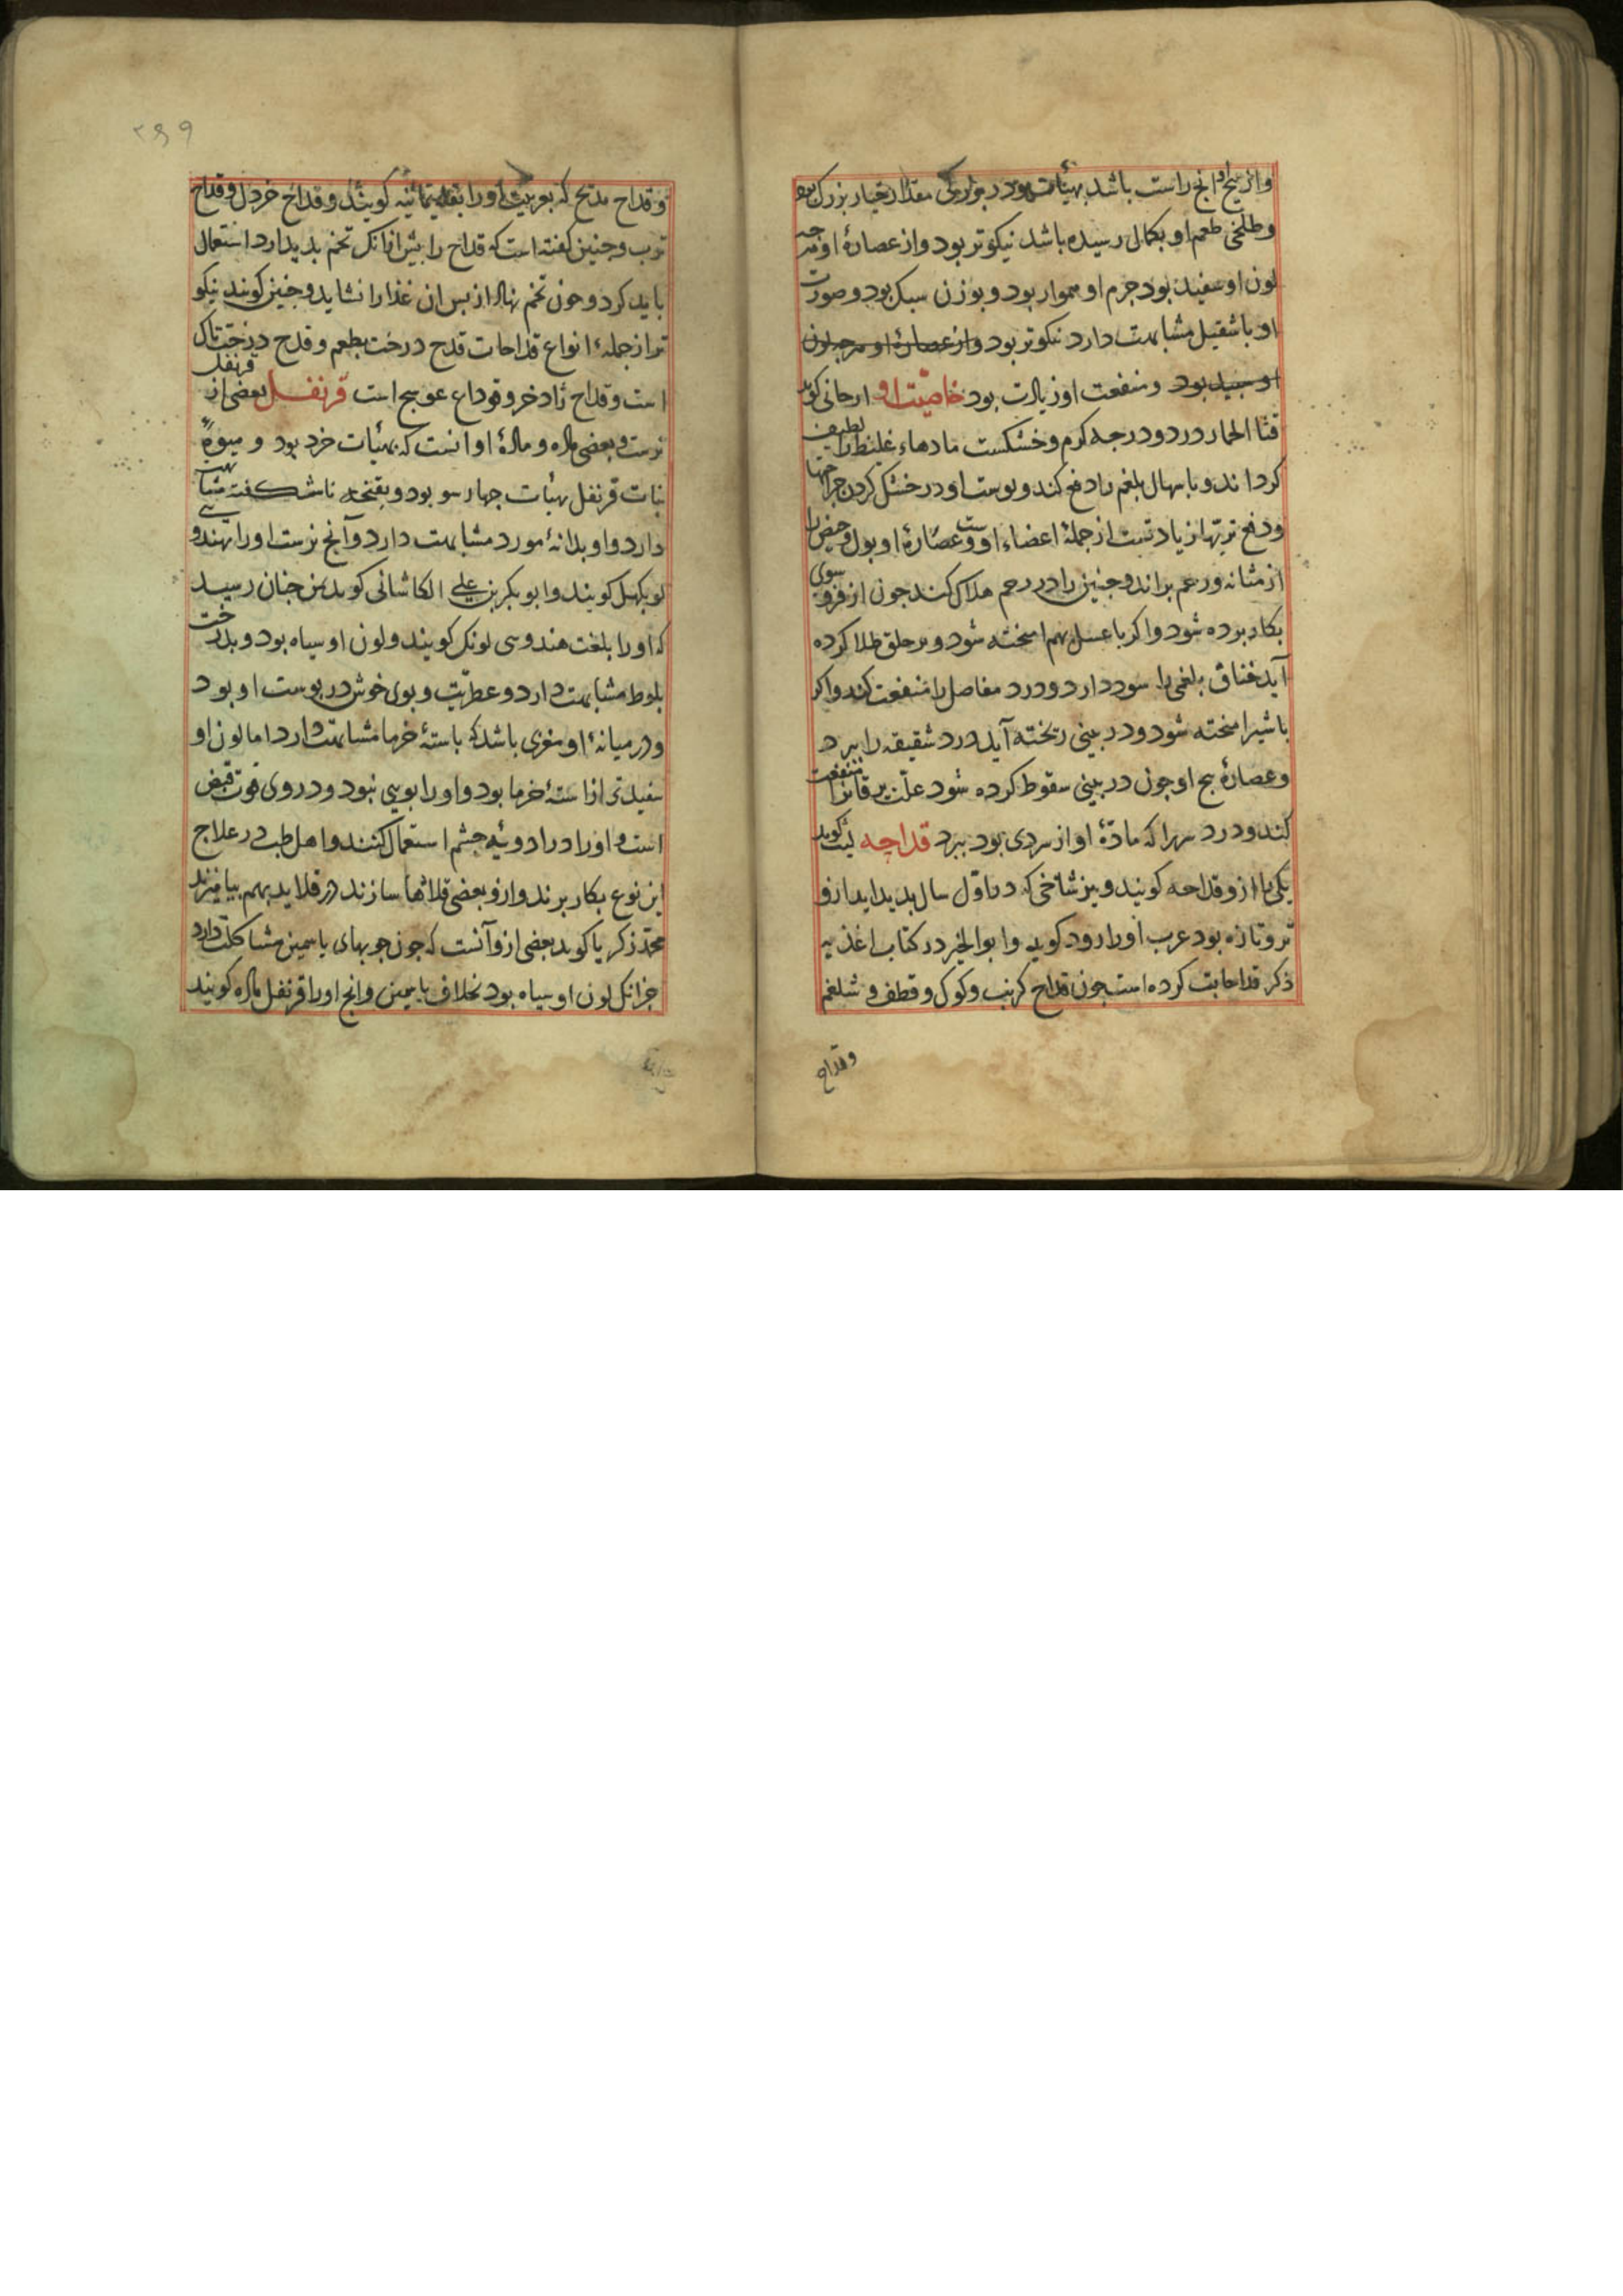 واز بیخ او آنج راست باشد بهیأت بود در بزرکی مقدار خیار بزرک بود
وطلخی طعم او بکمال رسیده باشد نیکوتر بود واز عصارهٔ او هرچه
لون او سفید بود جرم او هموار بود و بوزن سبک بود و صورت
او باشقیل مشابهت دارد نیکوتر بود واز عصارهٔ او هرچه لون
او سپید بود ومنفعت او زیادت بود خاصیت او ارجانی کوید
قثا الحمار در دو درجه کرم وخشکست مادهاء غلیظ را لطیف
کرداند و باسهال بلغم را دفع کند و پوست او در خشک کردن جراحتها
ودفع تریها زیادتست از جملهٔ اعضاء او وعصارهٔ او بول وحیض را
از مثانه ورحم براند وجنین را در رحم هلاک کند چون از فرو سوی
بکار برده شود واکر با عسل بهم امیخته شود و بر حلق طلا کرده
آید خناق بلغمی را سود دارد ودرد مفاصل را منفعت کند واکر
با شیر امیخته شود ودر بینی ریخته آید درد شقیقه را ببرد
وعصارهٔ بیخ او چون در بینی سقوط کرده شود علت یرقانرا منفعت
کند ودرد سر را که مادّهٔ او از سردی بود ببرد قداحه لیث کوید
یکی را ازو قداحه کویند ونیز شاخی که در اوّل سال پدید اید ازو
تر وتازه بود عرب اورا رود کوید وابو الخیر در کتاب اغذیه
ذکر قداحات کرده است چون قداح کرنب وکوک وقطف و شلغم
وقداح
۲۶۹
وقداح مدیح که بعربیت اورا بقله یمانیه کویند وقداح خردل وقداح
ترب وچنین کفته است که قداح را پیش ازانکه تخم پدید ارد استعمال
باید کرد وچون تخم نهاد از پس ان غذا را نشاید وچنین کویند نیکو
تر از جملهٔ انواع قداحات قدح درخت بطعم وقدح درخت تاک
است وقداح زاد خرو وقداح عوسج است قرنفل قرنفل بعضی از
نرست وبعضی ماده ومادهٔ او انست که بهیأت خرد بود و میوهٔ
نبات قرنفل بهیأت چهار سو بود وبغنچه ناشکفته مشابهتی
دارد واو بدانهٔ مورد مشابهت دارد وآنج نرست اورا بهندوی
لوبکهل کویند وابو بکر بن علی الکاشانی کوید بمن چنان رسید
که اورا بلغت هندوسی لونک کویند ولون او سیاه بود وبدرخت
بلوط مشابهت دارد وعطریّت وبوی خوش در پوست او بود
ودر میانهٔ او مغزی باشد که باستهٔ خرما مشابهت دارد اما لون او
سفیدتر از استهٔ خرما بود واورا بویی نبود ودر وی قوت قبض
است واورا در ادویهٔ چشم استعمال کنند واهل طب در علاج
این نوع بکار برند وازو بعضی قلادها سازند ودر قلاید بهم بیامیزند
محمّد زکریا کوید بعضی ازو آنست که چون چوبهای یاسمین مشاکلت دارد
جزانک لون او سیاه بود بخلاف یاسمین وانج اورا قرنفل ماده کویند